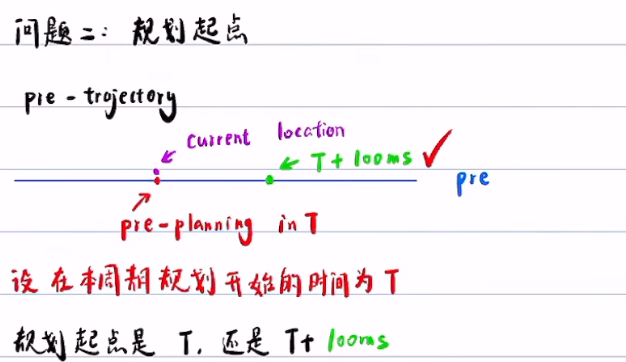 问题二：规划起点
pre-trajectory
current location
T+100ms
pre
pre-planning in T
设在本周期规划开始的时间为T
规划起点是 T，还是 T+100ms